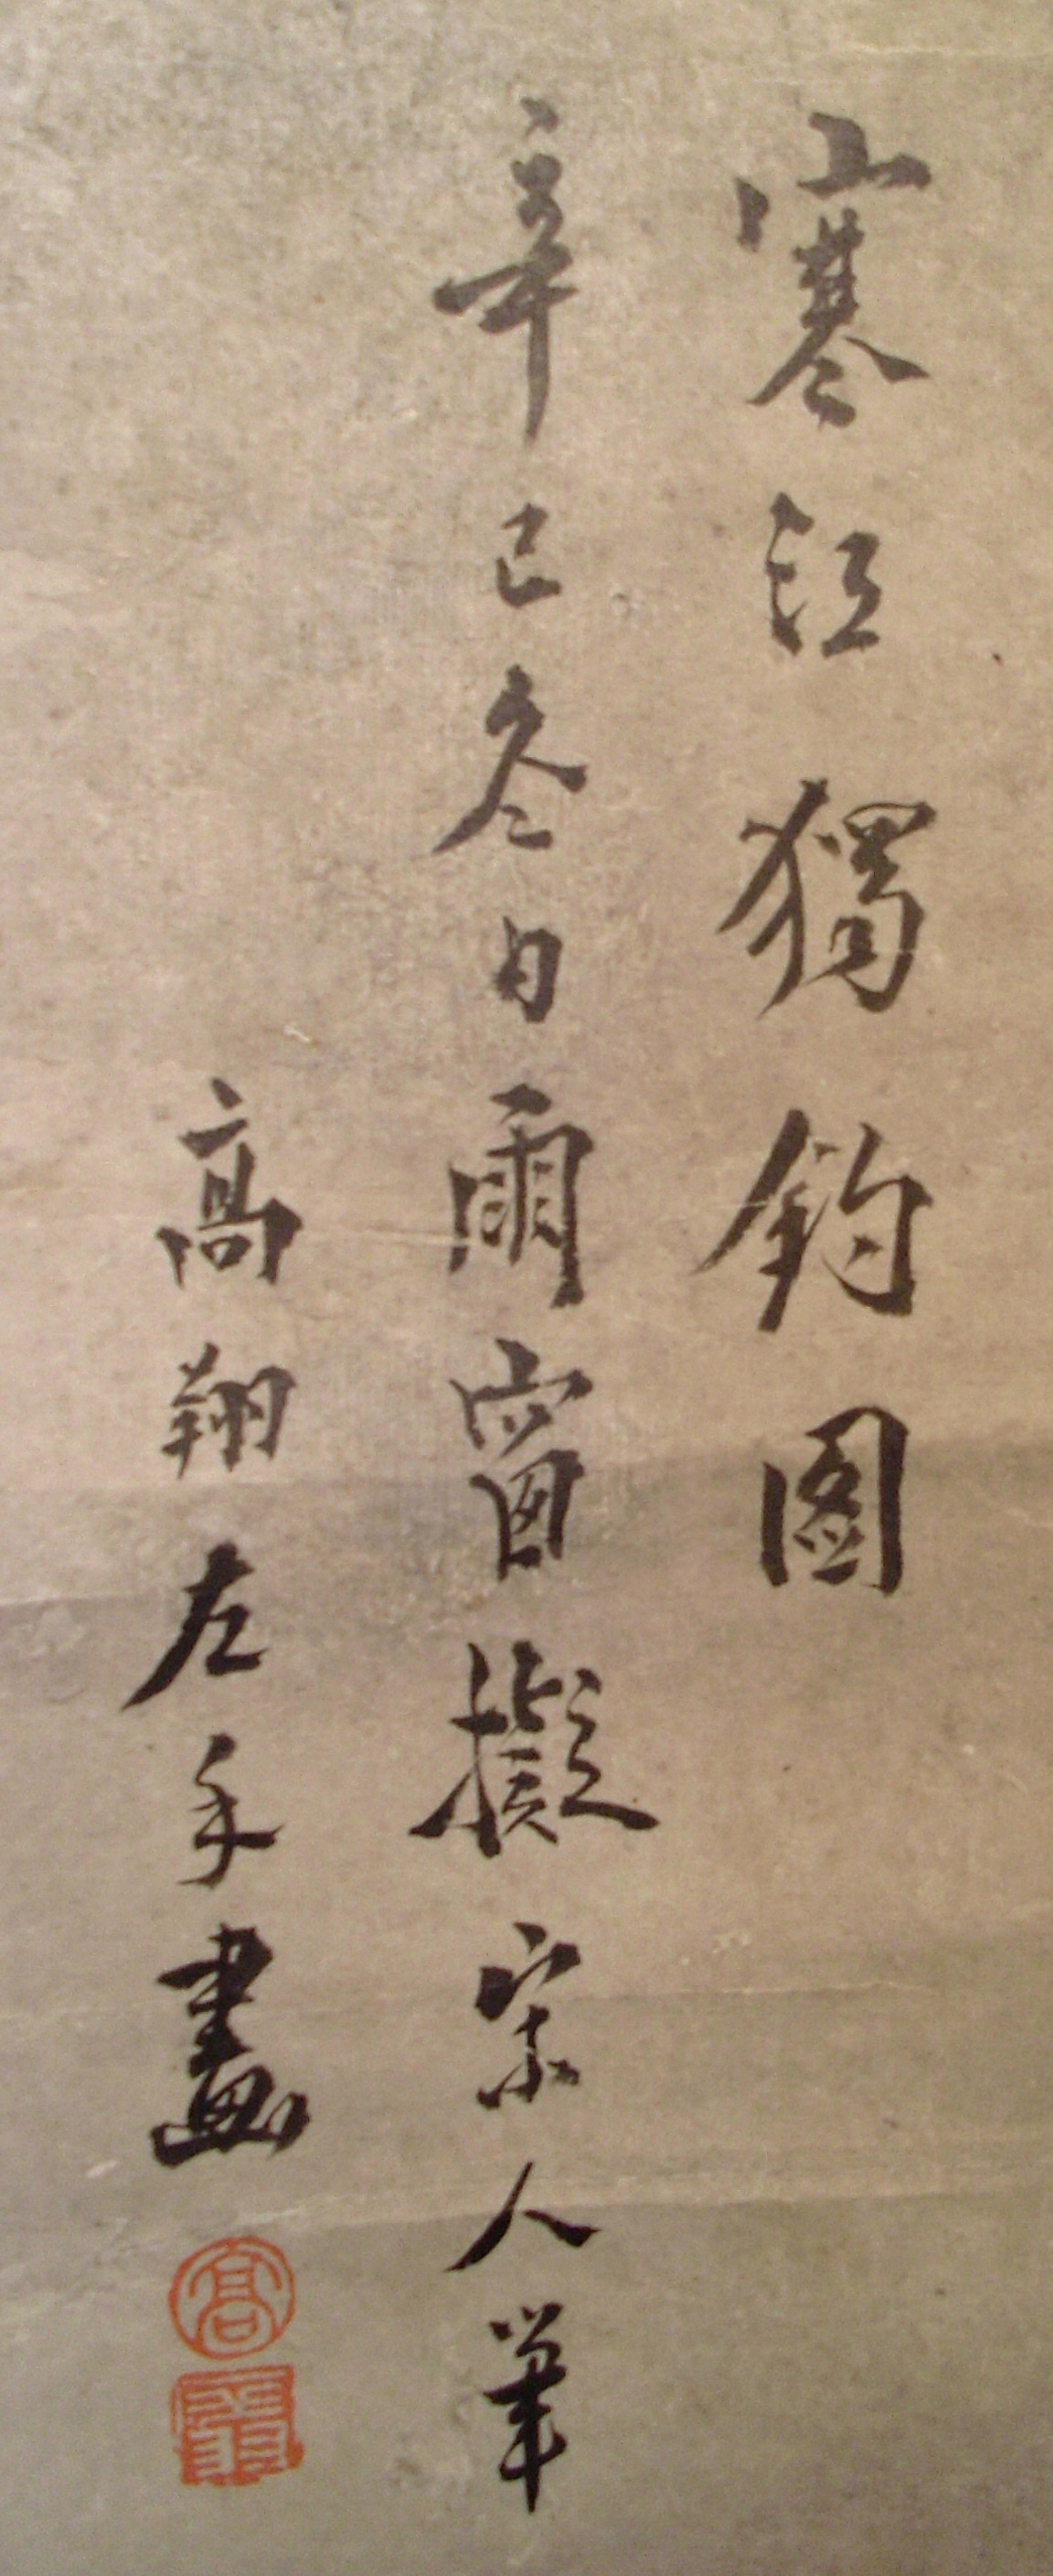 寒江獨釣圖
辛巳冬日雨窗擬宋人筆
高翔左手畫
高